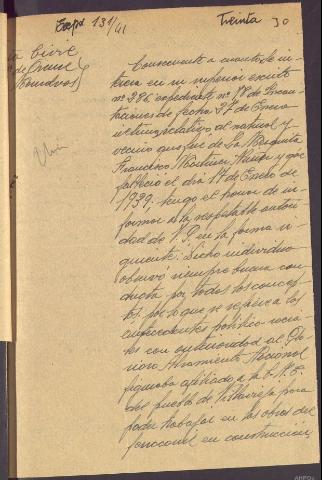 Expe 131/41
Treinta 30
Civil
de Orense
Consecuente a cuanto se in-
teresa en su superior escrito
nº 286 expediente nº 18 de Incau-
taciones de fecha 27 de Enero
al natural y
vecino que fue de La Mezquita
Francisco y que
falleció el día 17 de Enero de
1939, tengo el honor de in-
formar a la respetable autori-
dad de V.S. en la forma si-
guiente: Dicho individuo
observó siempre buena con-
ducta por todos los concep-
tos, por lo que se refiere a los
antecedentes político-socia-
les con anterioridad al Glo-
rioso Alzamiento Nacional
figuraba afiliado a la C.N.T.
del pueblo de Villavieja para
poder trabajar en las obras del
ferrocarril en construcción,
AHPOu